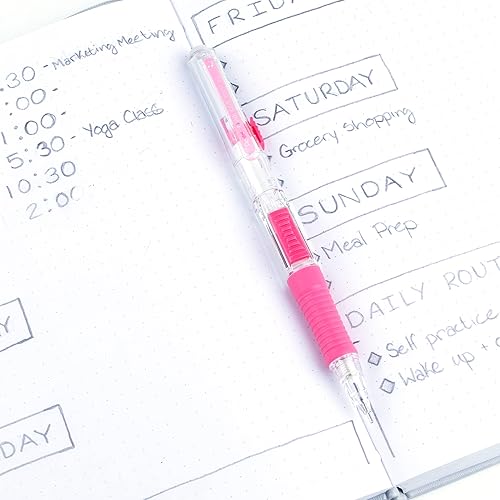 :30 - Marketing Meeting
:00 -
1:00 -
5:30 - Yoga Class
10:30
2:00
AY
DAY
FRIDA
SATURDAY
Grocery Shopping
SUNDAY
Meal Prep
DAILY ROUT
Self practice
Wake up +